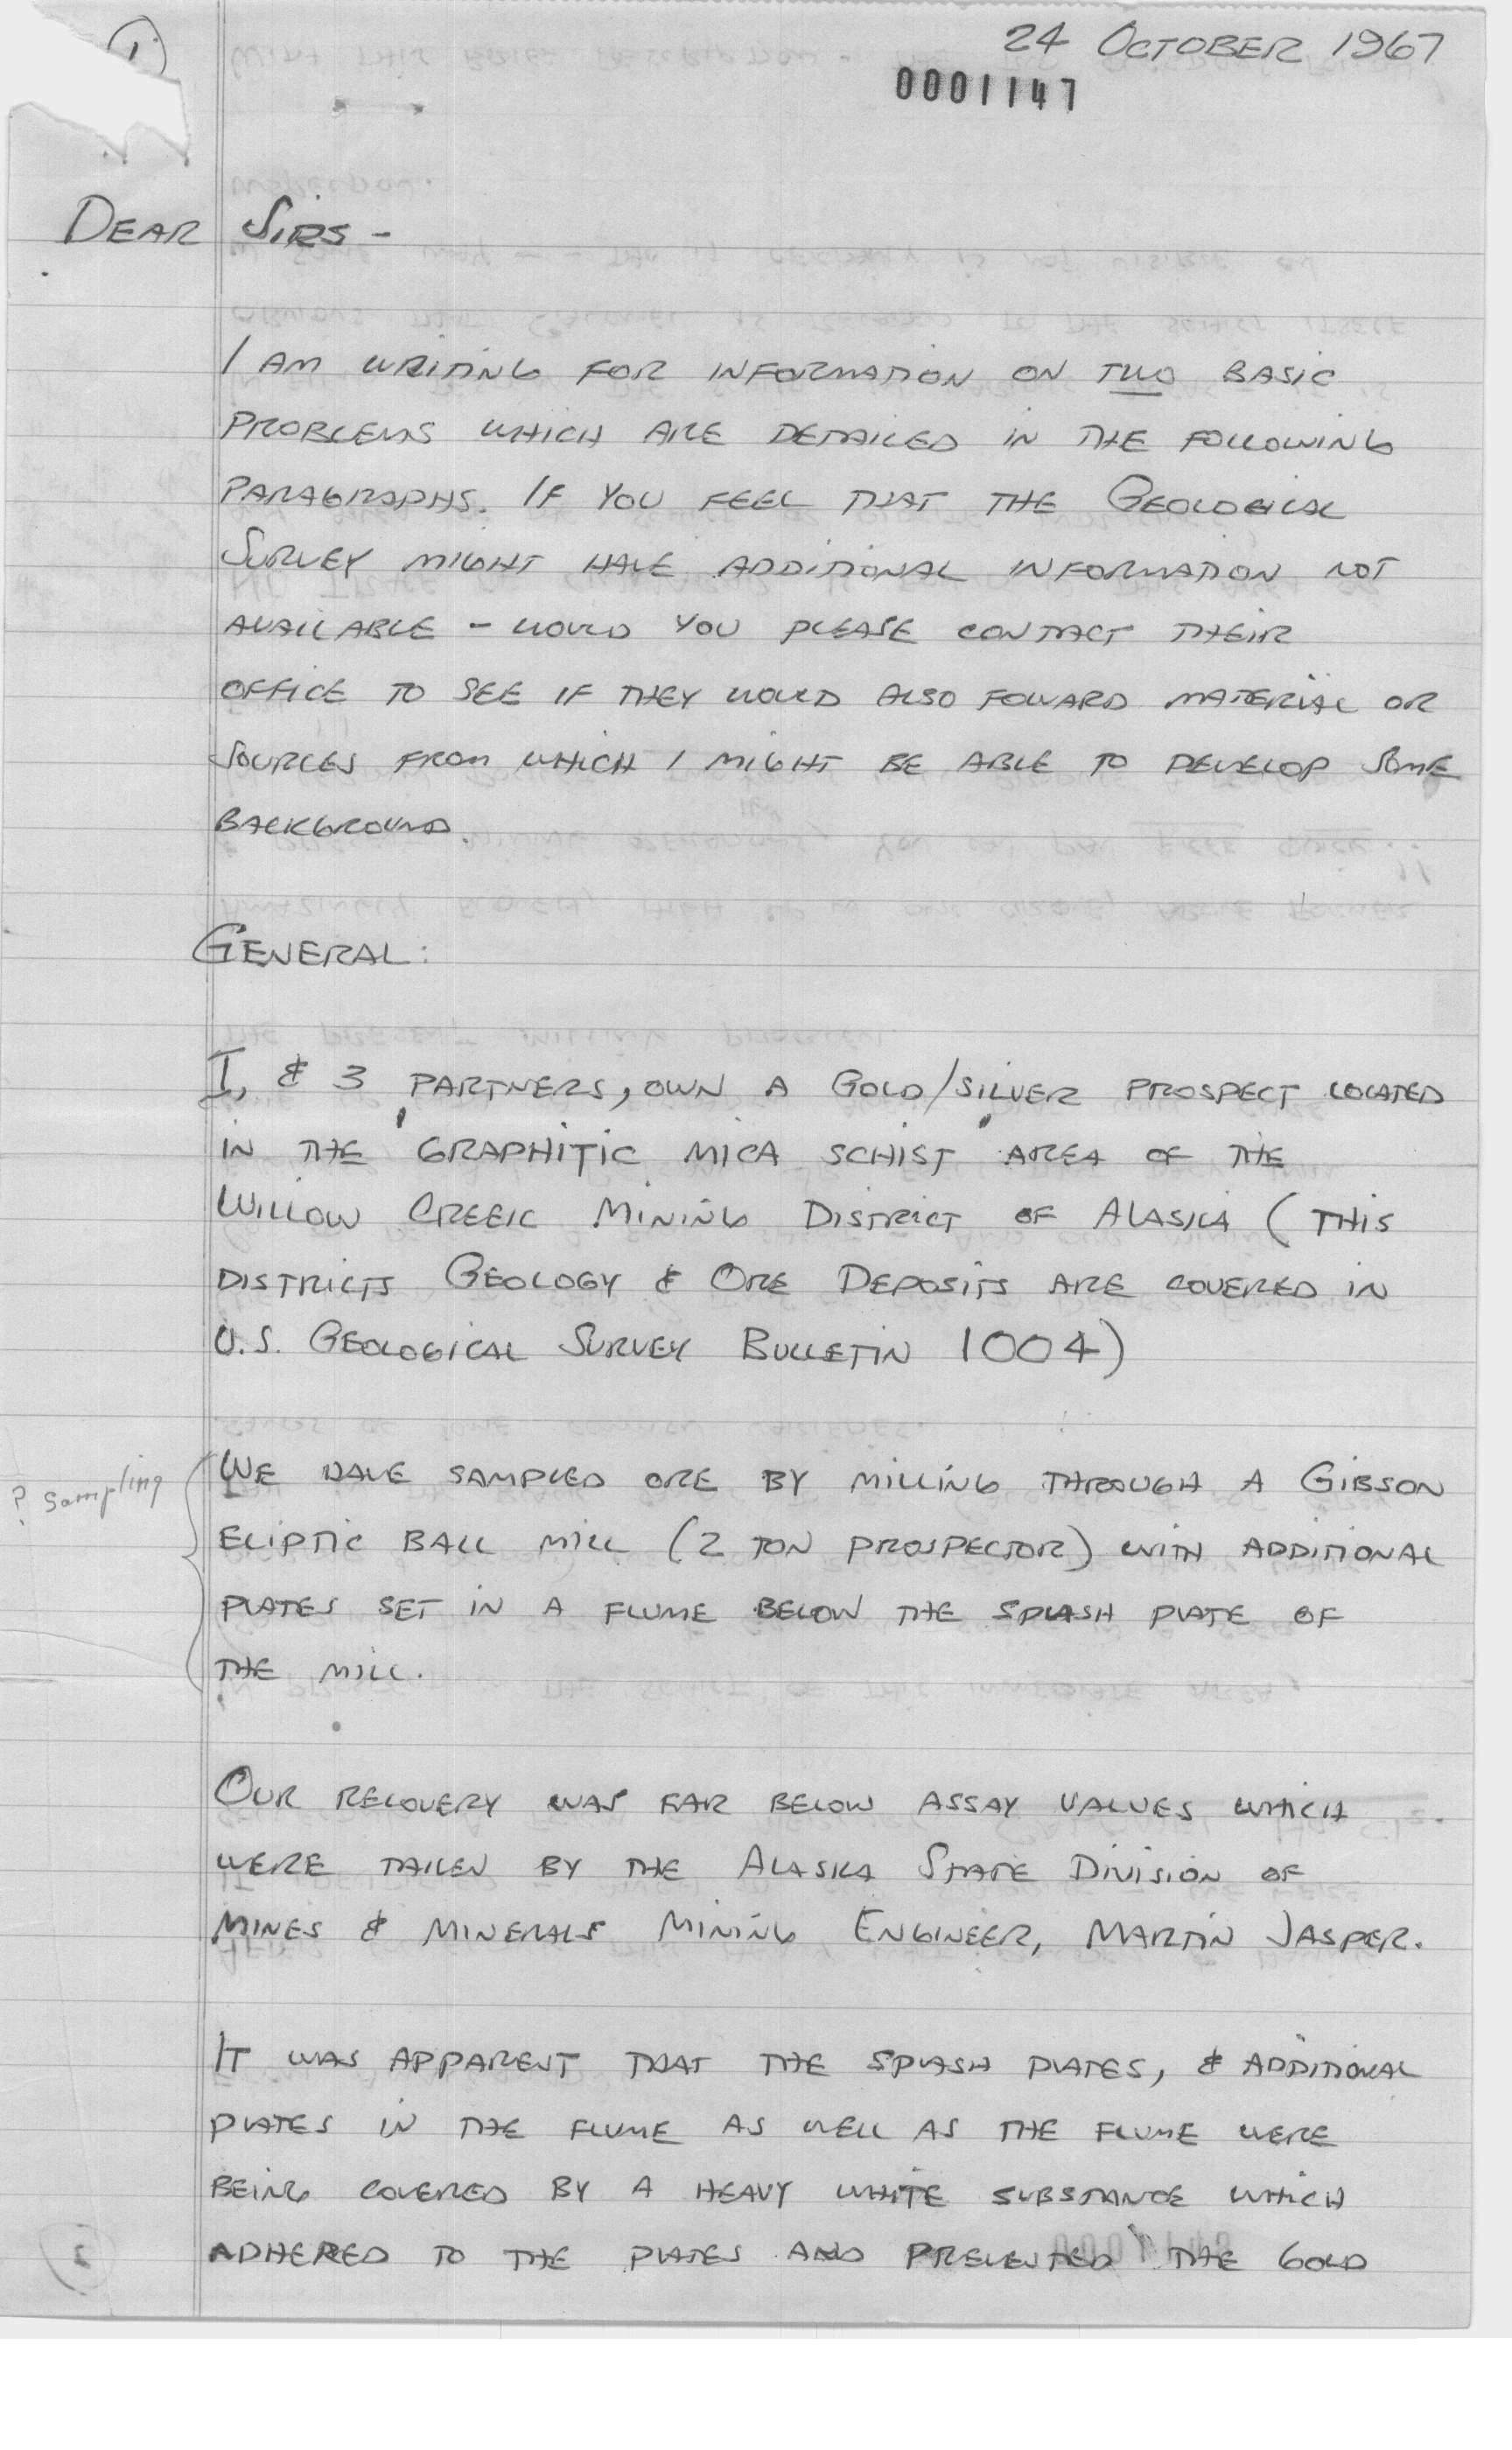 1
24 OCTOBER 1967
0001147
DEAR SIRS -
I AM WRITING FOR INFORMATION ON TWO BASIC
PROBLEMS WHICH ARE DETAILED IN THE FOLLOWING
PARAGRAPHS. IF YOU FEEL THAT THE GEOLOGICAL
SURVEY MIGHT HAVE ADDITIONAL INFORMATION NOT
AVAILABLE - WOULD YOU PLEASE CONTACT THEIR
OFFICE TO SEE IF THEY WOULD ALSO FOWARD MATERIAL OR
SOURCES FROM WHICH I MIGHT BE ABLE TO DEVELOP SOME
BACKGROUND.
GENERAL:
I, & 3 PARTNERS, OWN A GOLD/SILVER PROSPECT LOCATED
IN THE 'GRAPHITIC MICA SCHIST' AREA OF THE
WILLOW CREEK MINING DISTRICT OF ALASKA (THIS
DISTRICTS GEOLOGY & ORE DEPOSITS ARE COVERED IN
U.S. GEOLOGICAL SURVEY BULLETIN 1004)
? Sampling
WE HAVE SAMPLED ORE BY MILLING THROUGH A GIBSON
ELIPTIC BALL MILL (2 TON PROSPECTOR) WITH ADDITIONAL
PLATES SET IN A FLUME BELOW THE SPLASH PLATE OF
THE MILL.
OUR RECOVERY WAS FAR BELOW ASSAY VALUES WHICH
WERE TAKEN BY THE ALASKA STATE DIVISION OF
MINES & MINERALS MINING ENGINEER, MARTIN JASPER.
IT WAS APPARENT THAT THE SPLASH PLATES, & ADDITIONAL
PLATES IN THE FLUME AS WELL AS THE FLUME WERE
BEING COVERED BY A HEAVY WHITE SUBSTANCE WHICH
ADHERED TO THE PLATES AND PREVENTED THE GOLD